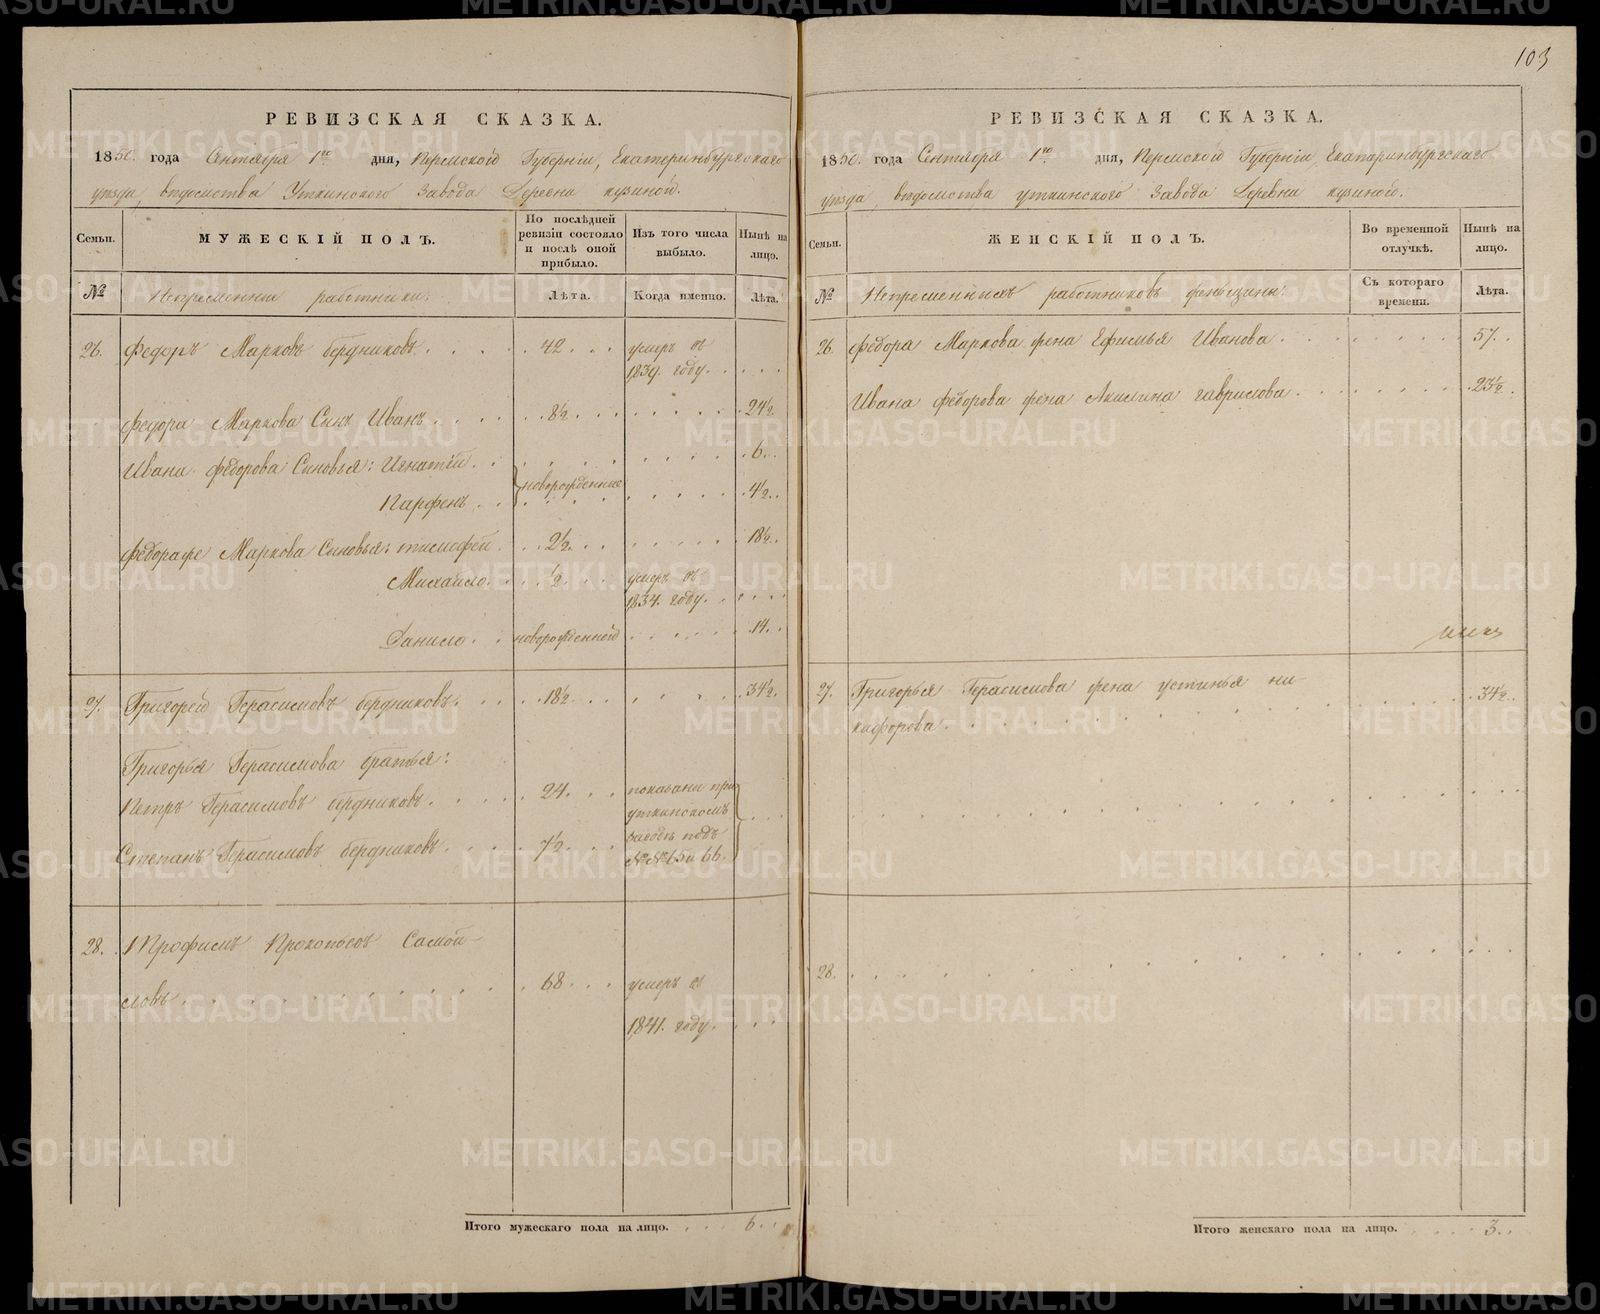 103
РЕВИЗСКАЯ СКАЗКА.
1850. года Сентября 1го дня, Пермской Губернии, Екатеринбургскаго
уезда, ведомства Уткинского Завода Деревни Кузиной.
Семьи.
МУЖЕСКІЙ ПОЛЪ.
По послѣдней ревизіи состояло и послѣ оной прибыло.
Изъ того числа выбыло.
Нынѣ на лицо.
№
Непременные работники:
Лѣта.
Когда именно.
Лѣта.
26. Федоръ Марковъ бердниковъ 42 умеръ въ
1839. году.
Федора Маркова Сынъ Иванъ 8½ 24½
Ивана Федорова Сыновья: Игнатий 6
новорожденные
Парфенъ 4½
Федора же Маркова Сыновья: тимофей 2½ 18½
Михайло ½ умеръ въ
1834. году.
Данило новорожденной 14
27. Григорей Герасимовъ бердниковъ 18½ 34½
Григорья Герасимова братья:
Петръ Герасимовъ бердниковъ 24 показаны при
уткинскомъ
Степанъ Герасимовъ бердниковъ 7½ заводе подъ
№№ 65 и 66.
28. Трофимъ Прокопьевъ Самой-
ловъ 68 умеръ въ
1841. году.
Итого мужескаго пола на лицо. 6
РЕВИЗСКАЯ СКАЗКА.
1850. года Сентября 1го дня, Пермской Губернии, Екатеринбургскаго
уезда, ведомства уткинского Завода Деревни Кузиной.
Семьи.
ЖЕНСКІЙ ПОЛЪ.
Во временной отлучкѣ.
Нынѣ на лицо.
№
Непременныхъ работниковъ женщины:
Съ котораго времени.
Лѣта.
26. Федора Маркова жена Ефимья Иванова 57
Ивана Федорова жена Акилина гаврилова 23½
27. Григорья Герасимова жена устинья ни-
кифорова 34½
28.
Итого женскаго пола на лицо. 3
METRIKI.GASO-URAL.RU